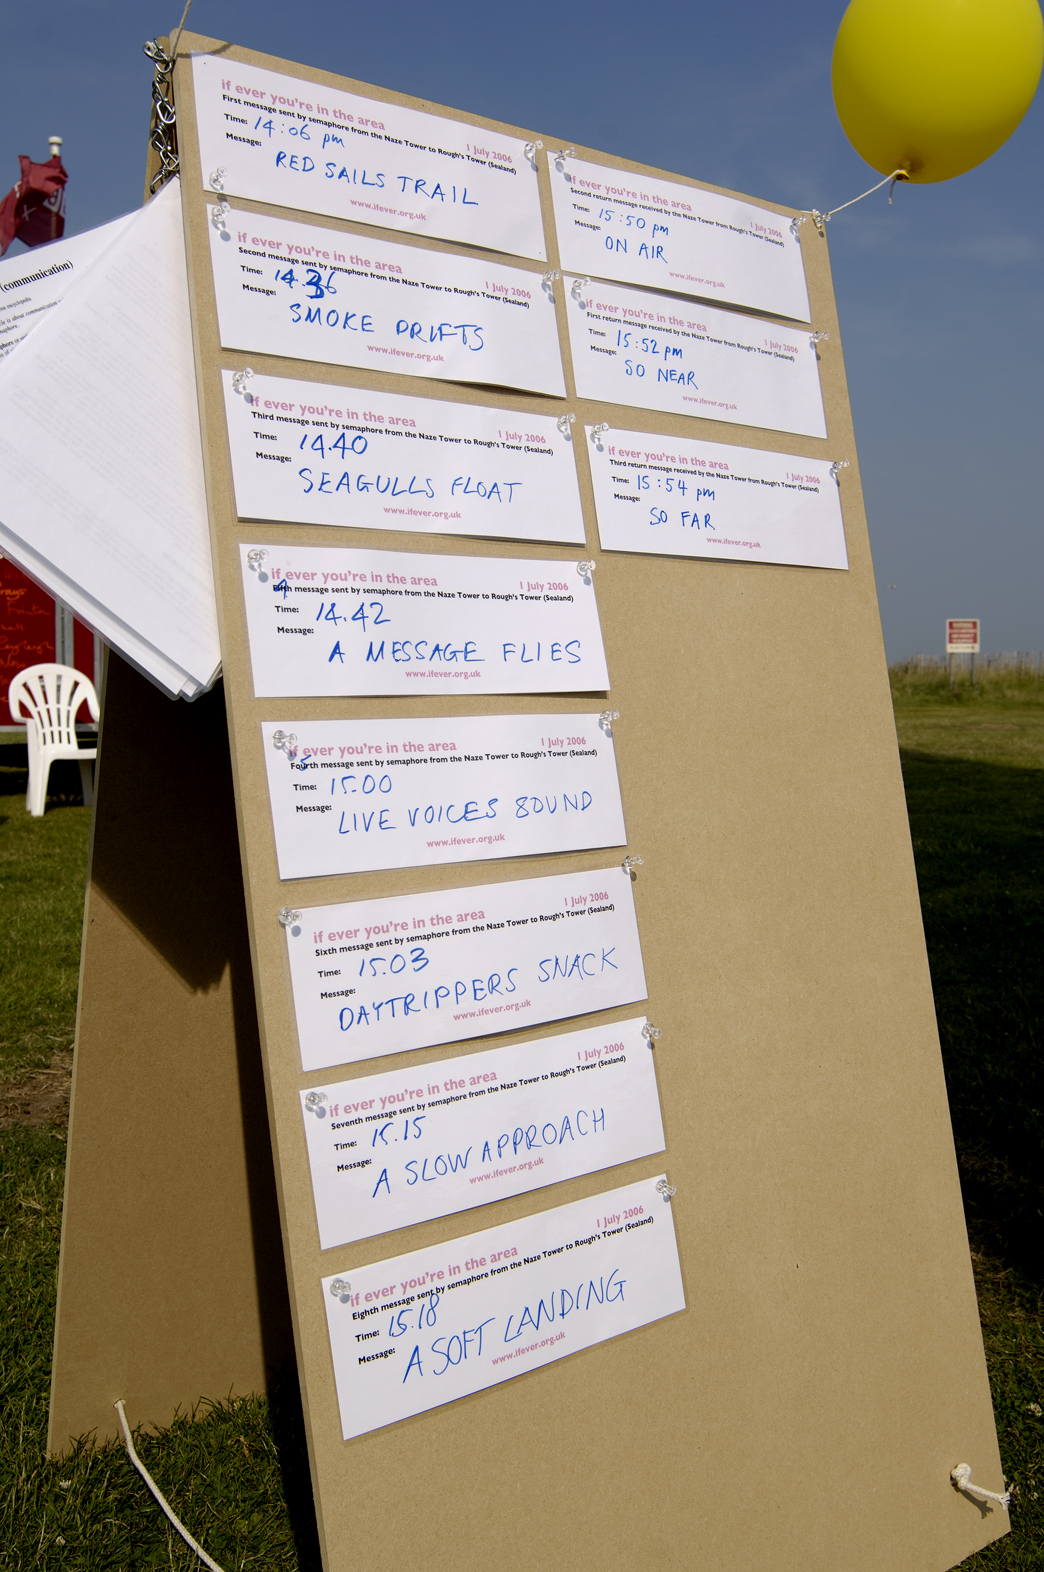 if ever you're in the area
1 July 2006
First message sent by semaphore from the Naze Tower to Rough's Tower (Sealand)
Time: 14:06 pm
Message:
RED SAILS TRAIL
www.ifever.org.uk
if ever you're in the area
1 July 2006
Second message sent by semaphore from the Naze Tower to Rough's Tower (Sealand)
Time: 14.36
Message:
SMOKE DRIFTS
www.ifever.org.uk
if ever you're in the area
1 July 2006
Third message sent by semaphore from the Naze Tower to Rough's Tower (Sealand)
Time: 14.40
Message:
SEAGULLS FLOAT
www.ifever.org.uk
if ever you're in the area
1 July 2006
message sent by semaphore from the Naze Tower to Rough's Tower (Sealand)
Time: 14.42
Message:
A MESSAGE FLIES
www.ifever.org.uk
if ever you're in the area
1 July 2006
Fourth message sent by semaphore from the Naze Tower to Rough's Tower (Sealand)
5
Time: 15.00
Message:
LIVE VOICES SOUND
www.ifever.org.uk
if ever you're in the area
1 July 2006
Sixth message sent by semaphore from the Naze Tower to Rough's Tower (Sealand)
Time: 15.03
Message:
DAYTRIPPERS SNACK
www.ifever.org.uk
if ever you're in the area
1 July 2006
Seventh message sent by semaphore from the Naze Tower to Rough's Tower (Sealand)
Time: 15.15
Message:
A SLOW APPROACH
www.ifever.org.uk
if ever you're in the area
1 July 2006
Eighth message sent by semaphore from the Naze Tower to Rough's Tower (Sealand)
Time: 15.18
Message:
A SOFT LANDING
www.ifever.org.uk
if ever you're in the area
1 July 2006
Second return message received by the Naze Tower from Rough's Tower (Sealand)
Time: 15:50 pm
Message:
ON AIR
www.ifever.org.uk
if ever you're in the area
1 July 2006
First return message received by the Naze Tower from Rough's Tower (Sealand)
Time: 15:52 pm
Message:
SO NEAR
www.ifever.org.uk
if ever you're in the area
1 July 2006
Third return message received by the Naze Tower from Rough's Tower (Sealand)
Time: 15:54 pm
Message:
SO FAR
www.ifever.org.uk
(communication)
encyclopedia
is about communication